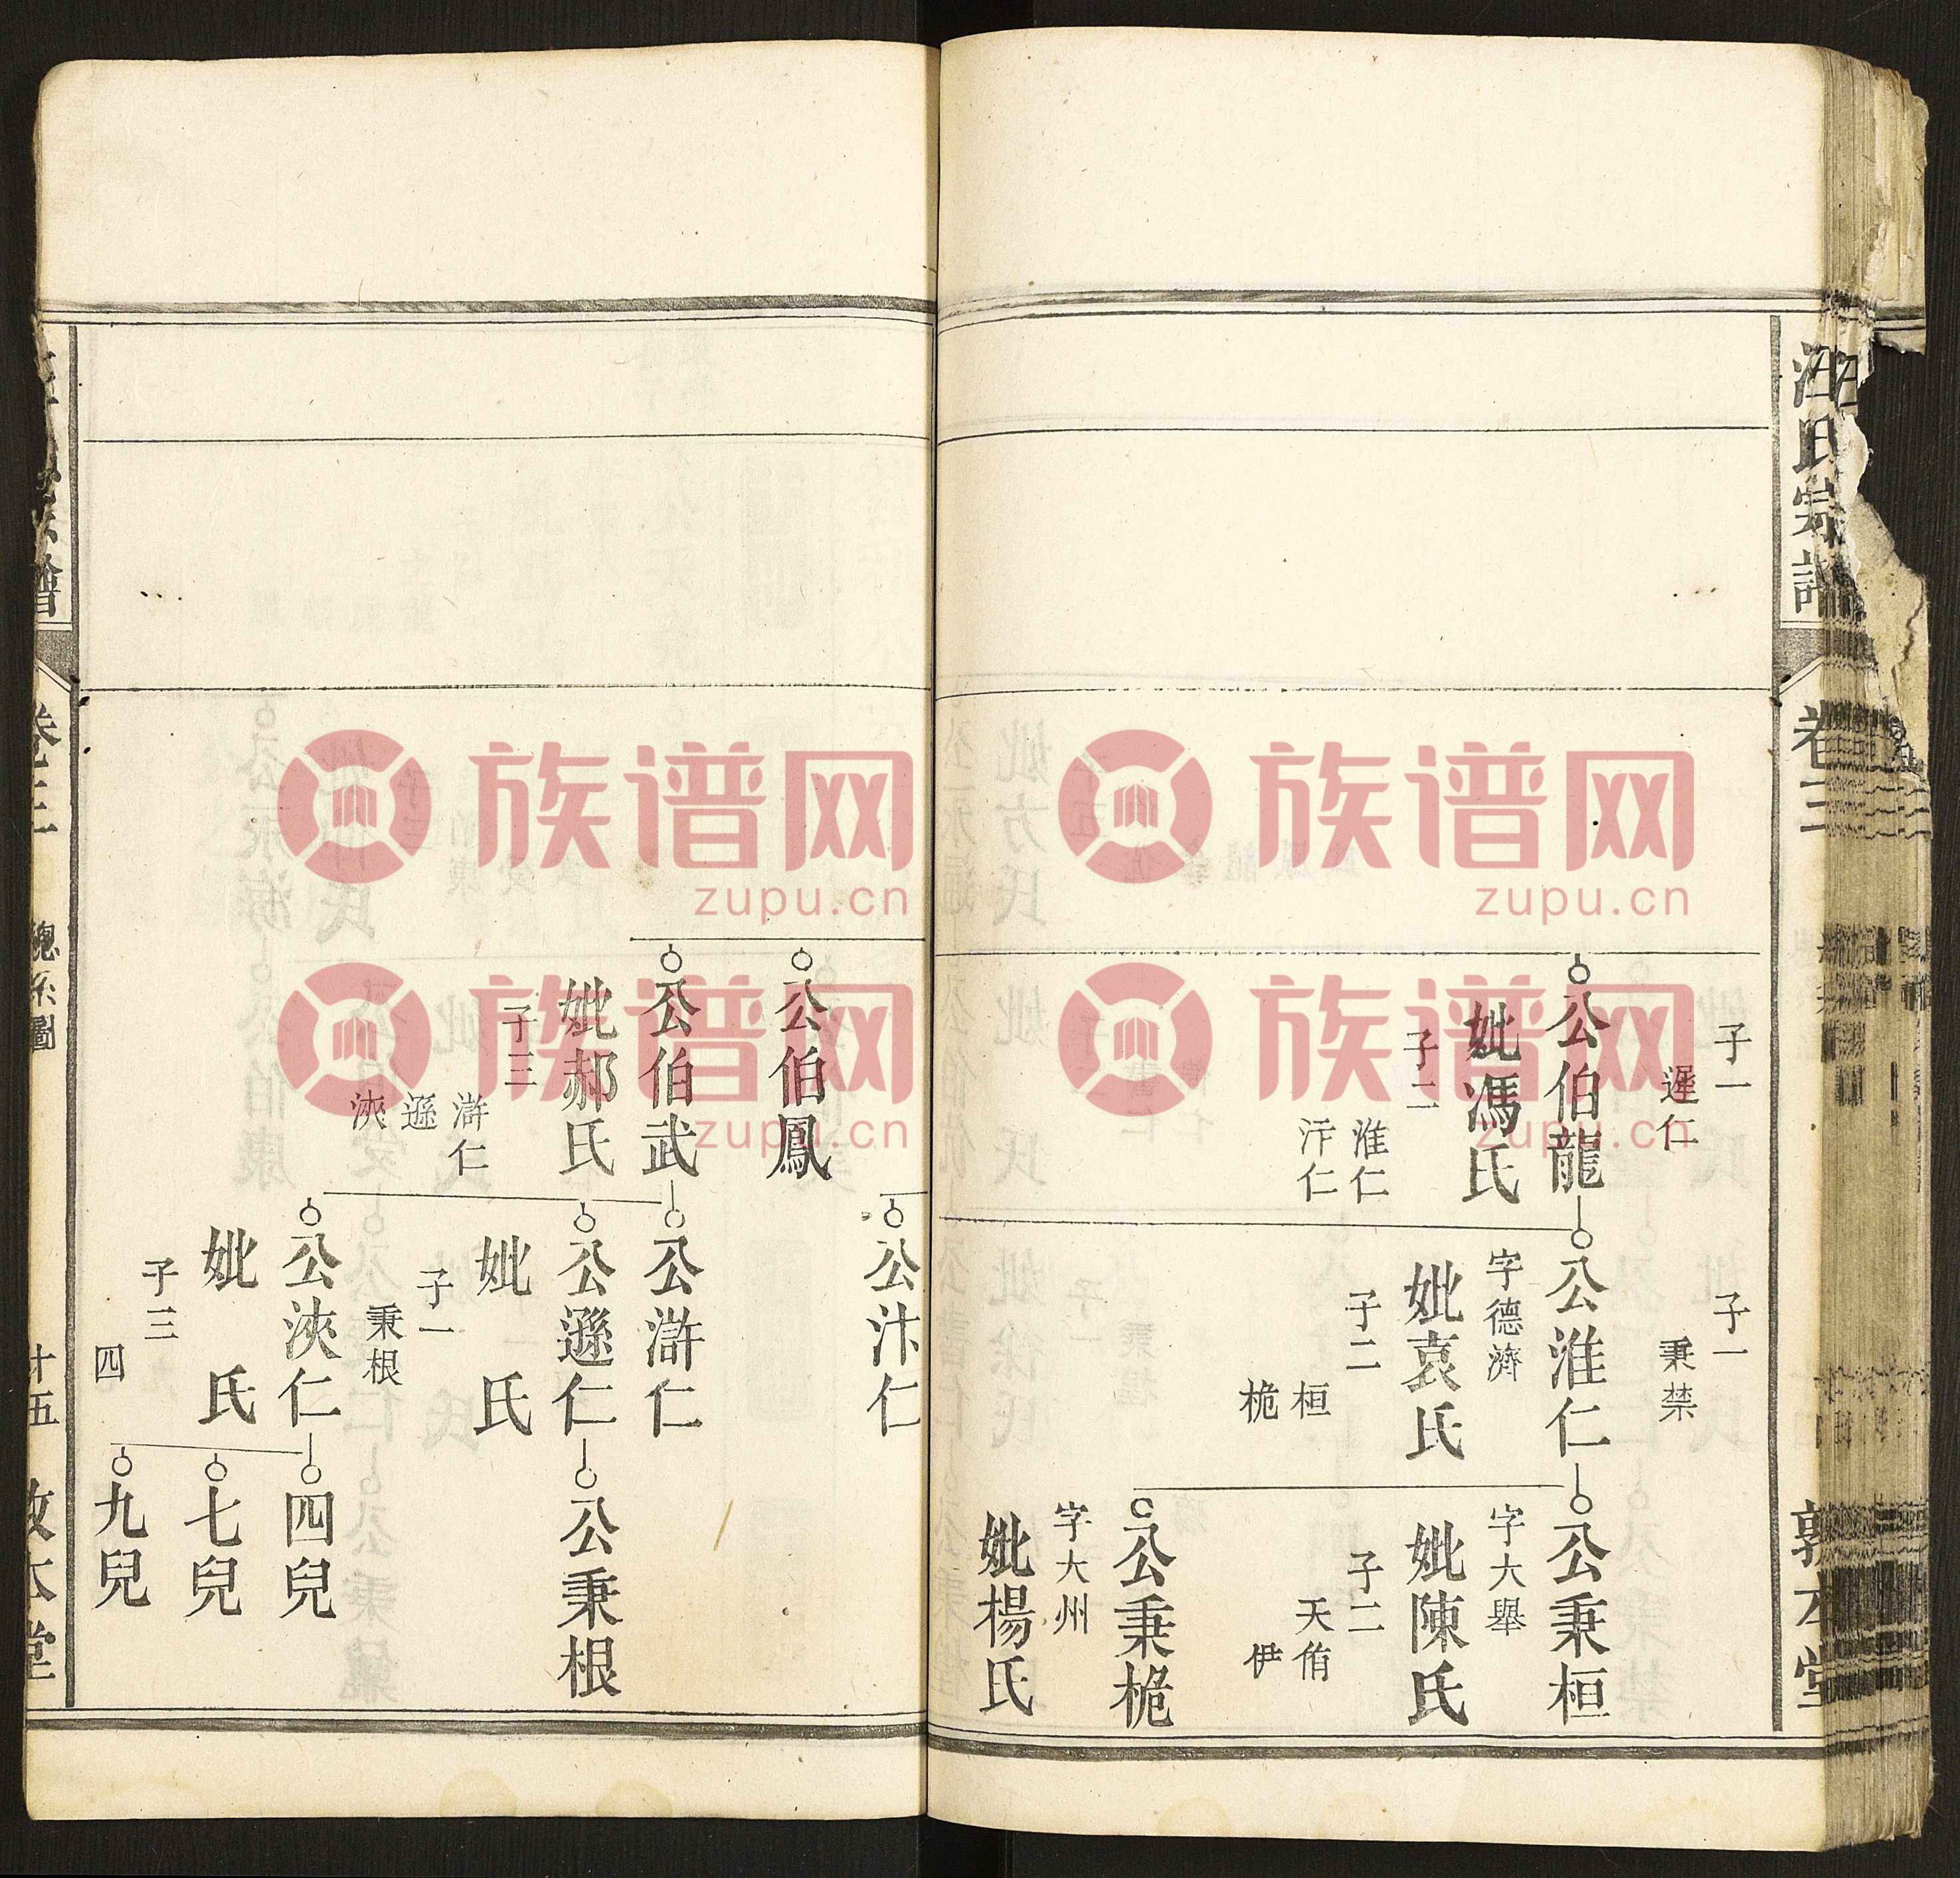 汪氏宗譜
卷三
敦本堂
子一
遲仁
公伯龍
妣馮氏
子二
淮仁
汗仁
子一
秉禁
公淮仁
字德濟
妣袁氏
子二
桓
桅
公秉桓
字大舉
妣陳氏
子二
天侑
伊
公秉桅
字大州
妣楊氏
公伯鳳
公伯武
妣郝氏
子三
滸仁
遜
浹
公汴仁
公滸仁
公遜仁
妣 氏
子一
秉根
公浹仁
妣 氏
子三
四
公秉根
四兒
七兒
九兒
卷三
總系圖
十五
堂
族谱网
zupu.cn
族谱网
zupu.cn
族谱网
zupu.cn
族谱网
zupu.cn